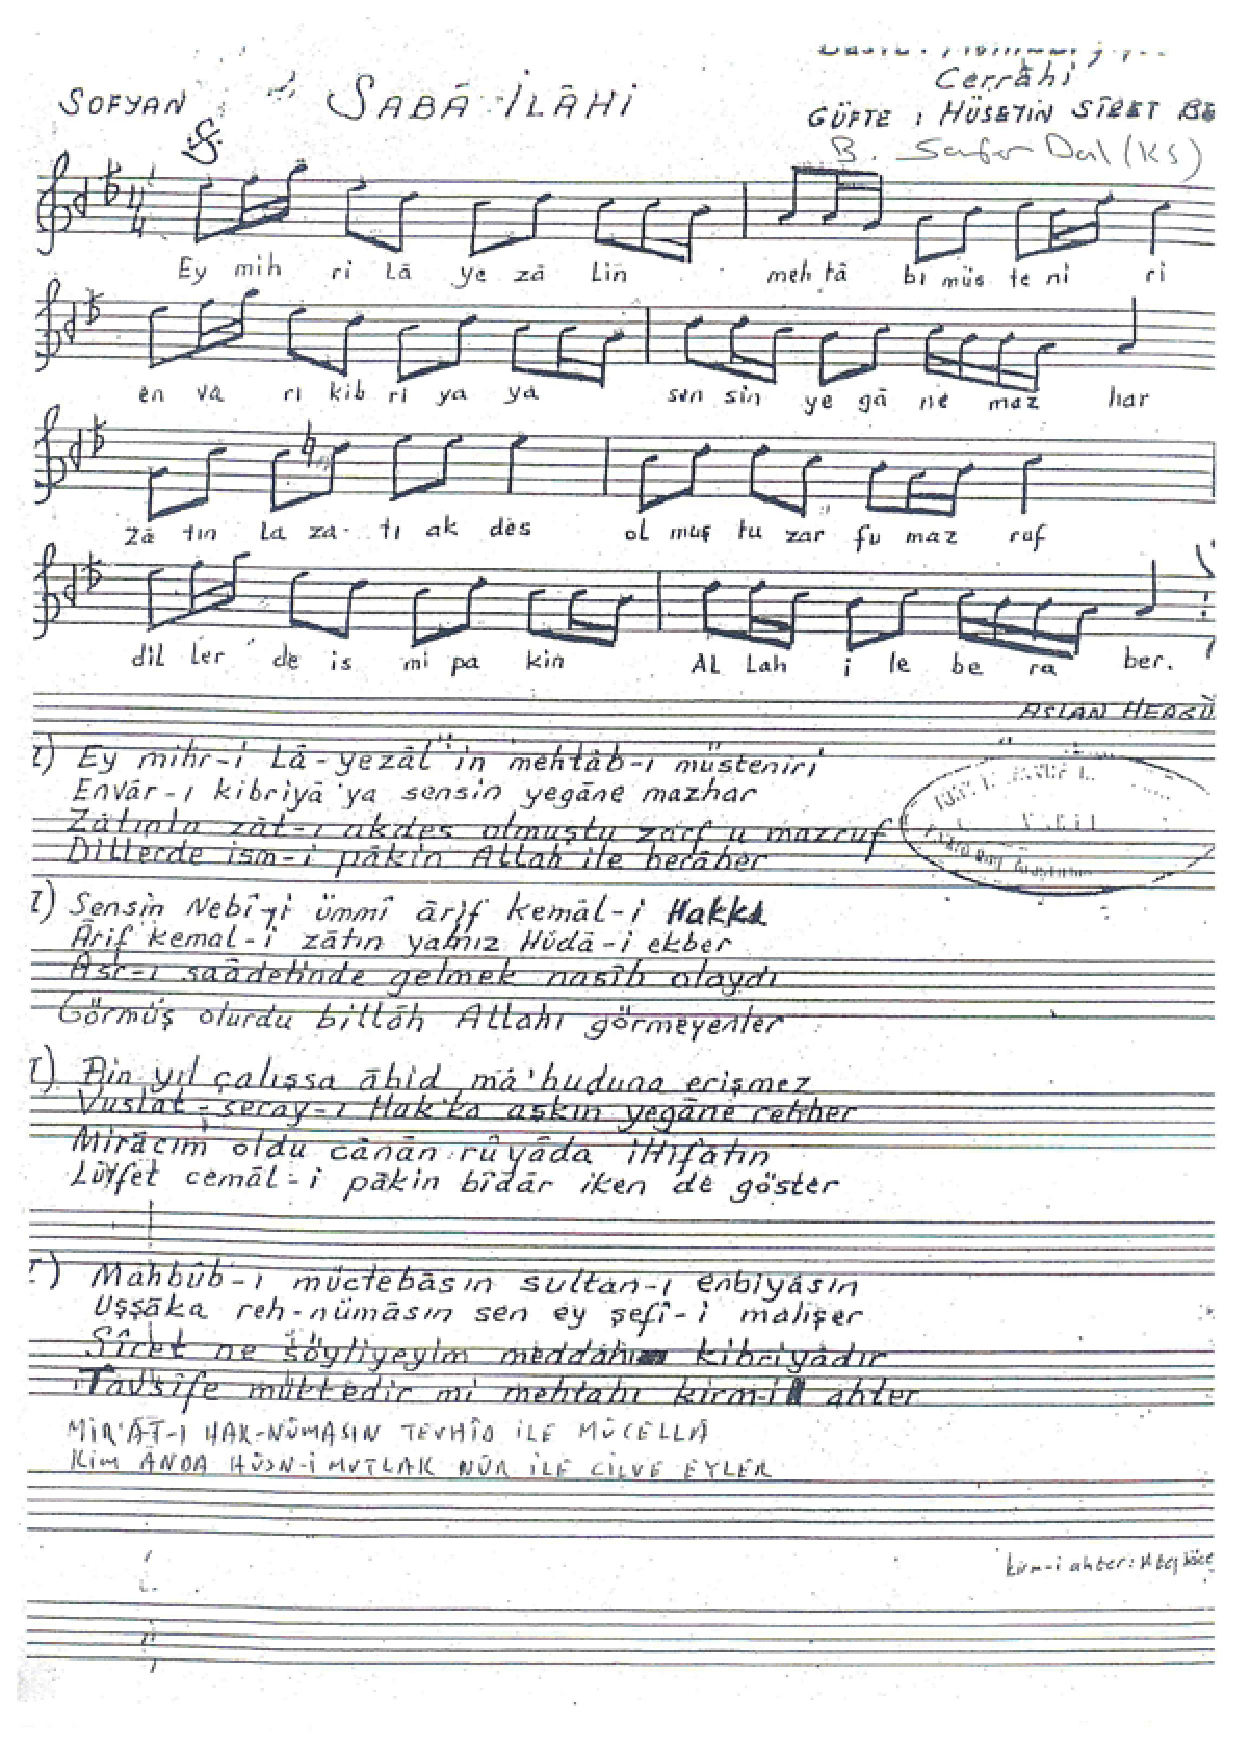 Cerrâhi
SOFYAN SABÂ İLÂHİ
GÜFTE : HÜSEYİN SÎRET BE
B. Sefer Dal (KS)
4
4
Ey mih ri Lâ ye zâ Lin meh tâ bı müs te ni ri
en va rı kib ri ya ya sen sin ye gâ ne maz har
Zâ tın La za tı ak des ol muş tu zar fu maz ruf
dil Ler de is mi pa kin AL Lah i le be ra ber.
ASLAN HEP
Ey mihr-i Lâ-yezâl'in mehtâb-ı müsteniri
Envâr-ı kibriyâ'ya sensin yegâne mazhar
Zâtınla zât-ı akdes olmuştu zarf u mazruf
Dillerde ism-i pâkin Allah ile berâber
Sensin Nebî-yi ümmî ârif kemâl-i Hakka
Ârif kemal-i zâtın yalnız Hüdâ-i ekber
Asr-ı saâdetinde gelmek nasîb olaydı
Görmüş olurdu billâh Allahı görmeyenler
Bin yıl çalışsa âbid mâ'buduna erişmez
Vuslat-seray-ı Hak'ka aşkın yegâne rehber
Mirâcım oldu cânân rûyâda iltifatın
Lûtfet cemâl-i pâkin bîdâr iken de göster
Mahbûb-ı müctebâsın sultan-ı enbiyâsın
Uşşâka reh-nümâsın sen ey şefî-i mahşer
Sîret ne söyliyeyim meddâhın kibriyâdır
Tavsîfe müktedir mi mehtabı kirm-i ahter
MİR'ÂT-I HAK-NÜMASIN TEVHİD İLE MÜCELLÂ
KİM ANDA HÜSN-İ MUTLAK NÛR İLE CİLVE EYLER
kirm-i ahter: